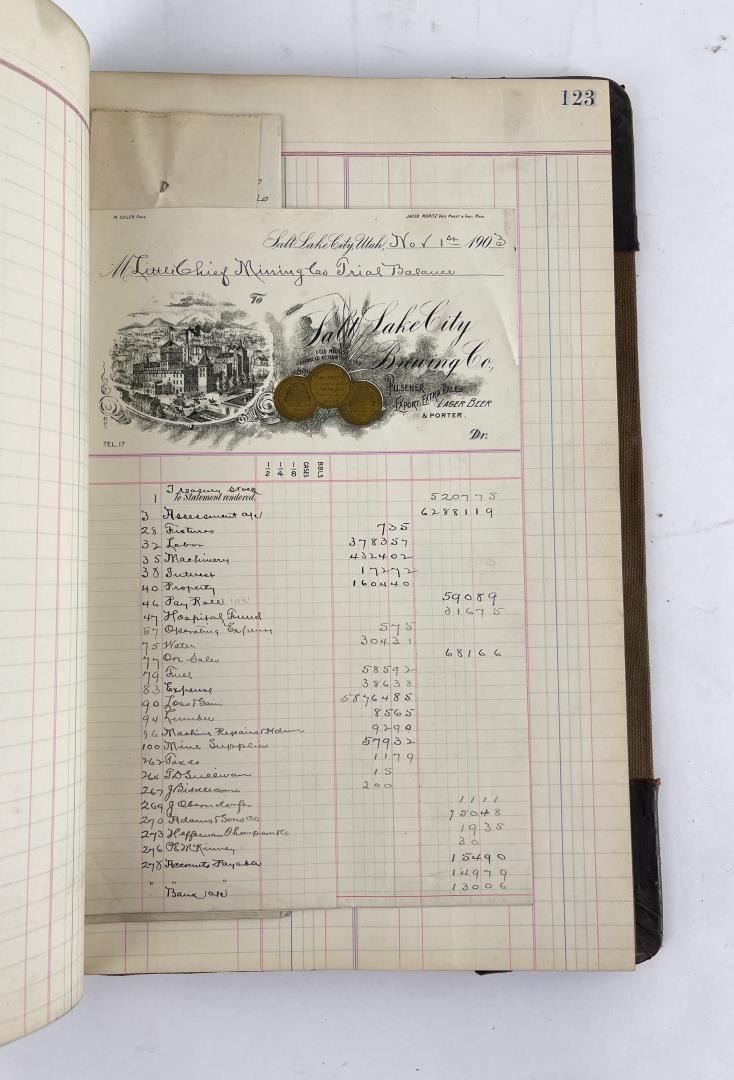 123
M. CULLEN, Pres. JACOB MORITZ Vice Prest & Gen. Man.
Salt Lake City, Utah, Nov 1st 1903
M Little Chief Mining Co Trial Balance
To
Salt Lake City
Brewing Co,
GOLD MEDAL
PILSENER
EXPORT, EXTRA PALE,
LAGER BEER
& PORTER.
TEL. 17
Dr.
1/2 1/4 1/8 CASES BBLS
1 Treasury Stock 520775
To Statement rendered,
3 Assessment a/c 6288119
28 Fixtures 735
32 Labor 378357
35 Machinery 432402
38 Interest 17272
40 Property 160440
46 Pay Roll 59089
47 Hospital Fund 31675
57 Operating Expense 575
75 Water 30431
77 Ore Sales 68166
79 Fuel 58592
83 Expense 38638
90 Loss & Gain 5876485
94 Lumber 8565
96 Machine Repairs & Hdwre 9290
100 Mine Supplies 57932
262 Taxes 1179
264 T D Sullivan 15
267 J Biddlecome 200
269 J Oberndorfer 1111
270 Adams & Sons Co 75048
273 Heffernan Thompson Co 1935
276 McKinney 30
278 Accounts Payable 15490
" " " 14979
" Bank a/c 13006